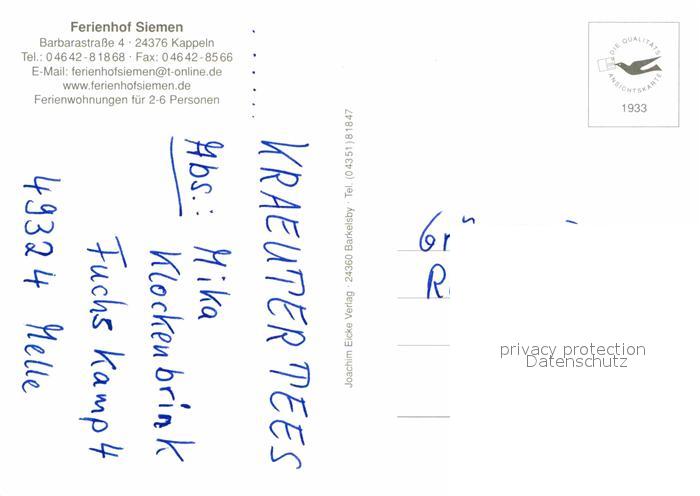 Ferienhof Siemen
Barbarastraße 4 · 24376 Kappeln
Tel.: 0 46 42-8 18 68 · Fax: 0 46 42-85 66
E-Mail: ferienhofsiemen@t-online.de
www.ferienhofsiemen.de
Ferienwohnungen für 2-6 Personen
KRAEUTER TEES
Abs.: Mika
Klockenbrink
Fuchskamp 4
49324 Melle
Joachim Eicke Verlag · 24360 Barkelsby · Tel. (0 43 51) 8 18 47
DIE QUALITÄTS
ANSICHTSKARTE
1933
privacy protection
Datenschutz